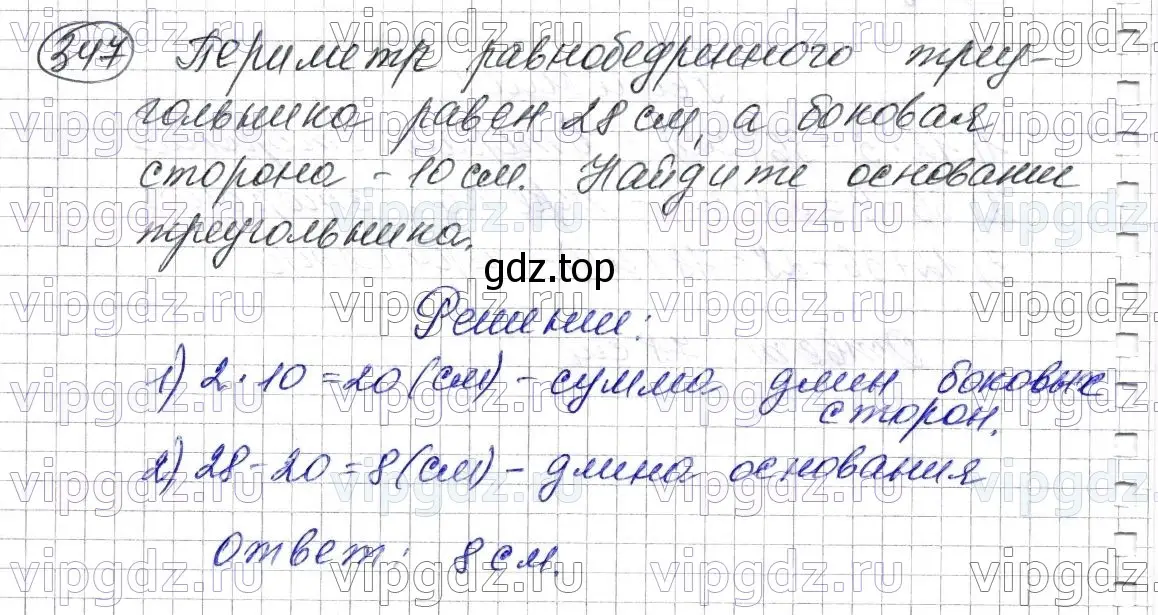 347 Периметр равнобедренного треу-
гольника равен 28 см, а боковая
сторона - 10 см. Найдите основание
треугольника.
gdz.top
Решение:
1) 2 · 10 = 20 (см) - сумма длин боковых
сторон.
2) 28 - 20 = 8 (см) - длина основания
Ответ: 8 см.
vipgdz.ru